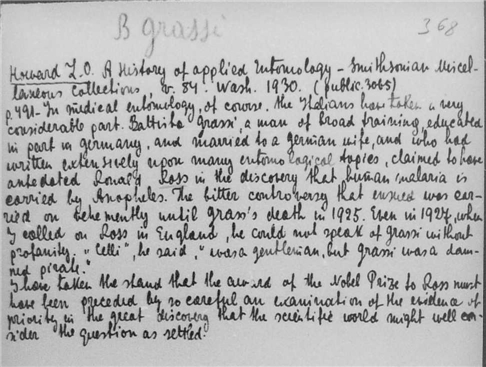 B grassi
368
Howard L.O. A History of applied Entomology - Smithsonian Miscel-
laneous Collections, v. 84. Wash. 1930. (public. 3065)
p. 491 - In medical entomology, of course, the Italians have taken a very
considerable part. Battista Grassi, a man of broad training, educated
in part in germany, and married to a german wife, and who had
written extensively upon many entomological topics, claimed to have
antedated Ronald Ross in the discovery that human malaria is
carried by Anopheles. The bitter controversy that ensued was car-
ried on vehemently until grassi's death in 1925. Even in 1927, when
I called on Ross in England, he could not speak of grassi without
profanity. "Celli", he said, "was a gentleman, but grassi was a dam-
ned pirate."
I have taken the stand that the award of the Nobel Prize to Ross must
have been preceded by so careful an examination of the evidence of
priority in the great discovery that the scientific world might well con-
sider the question as settled.